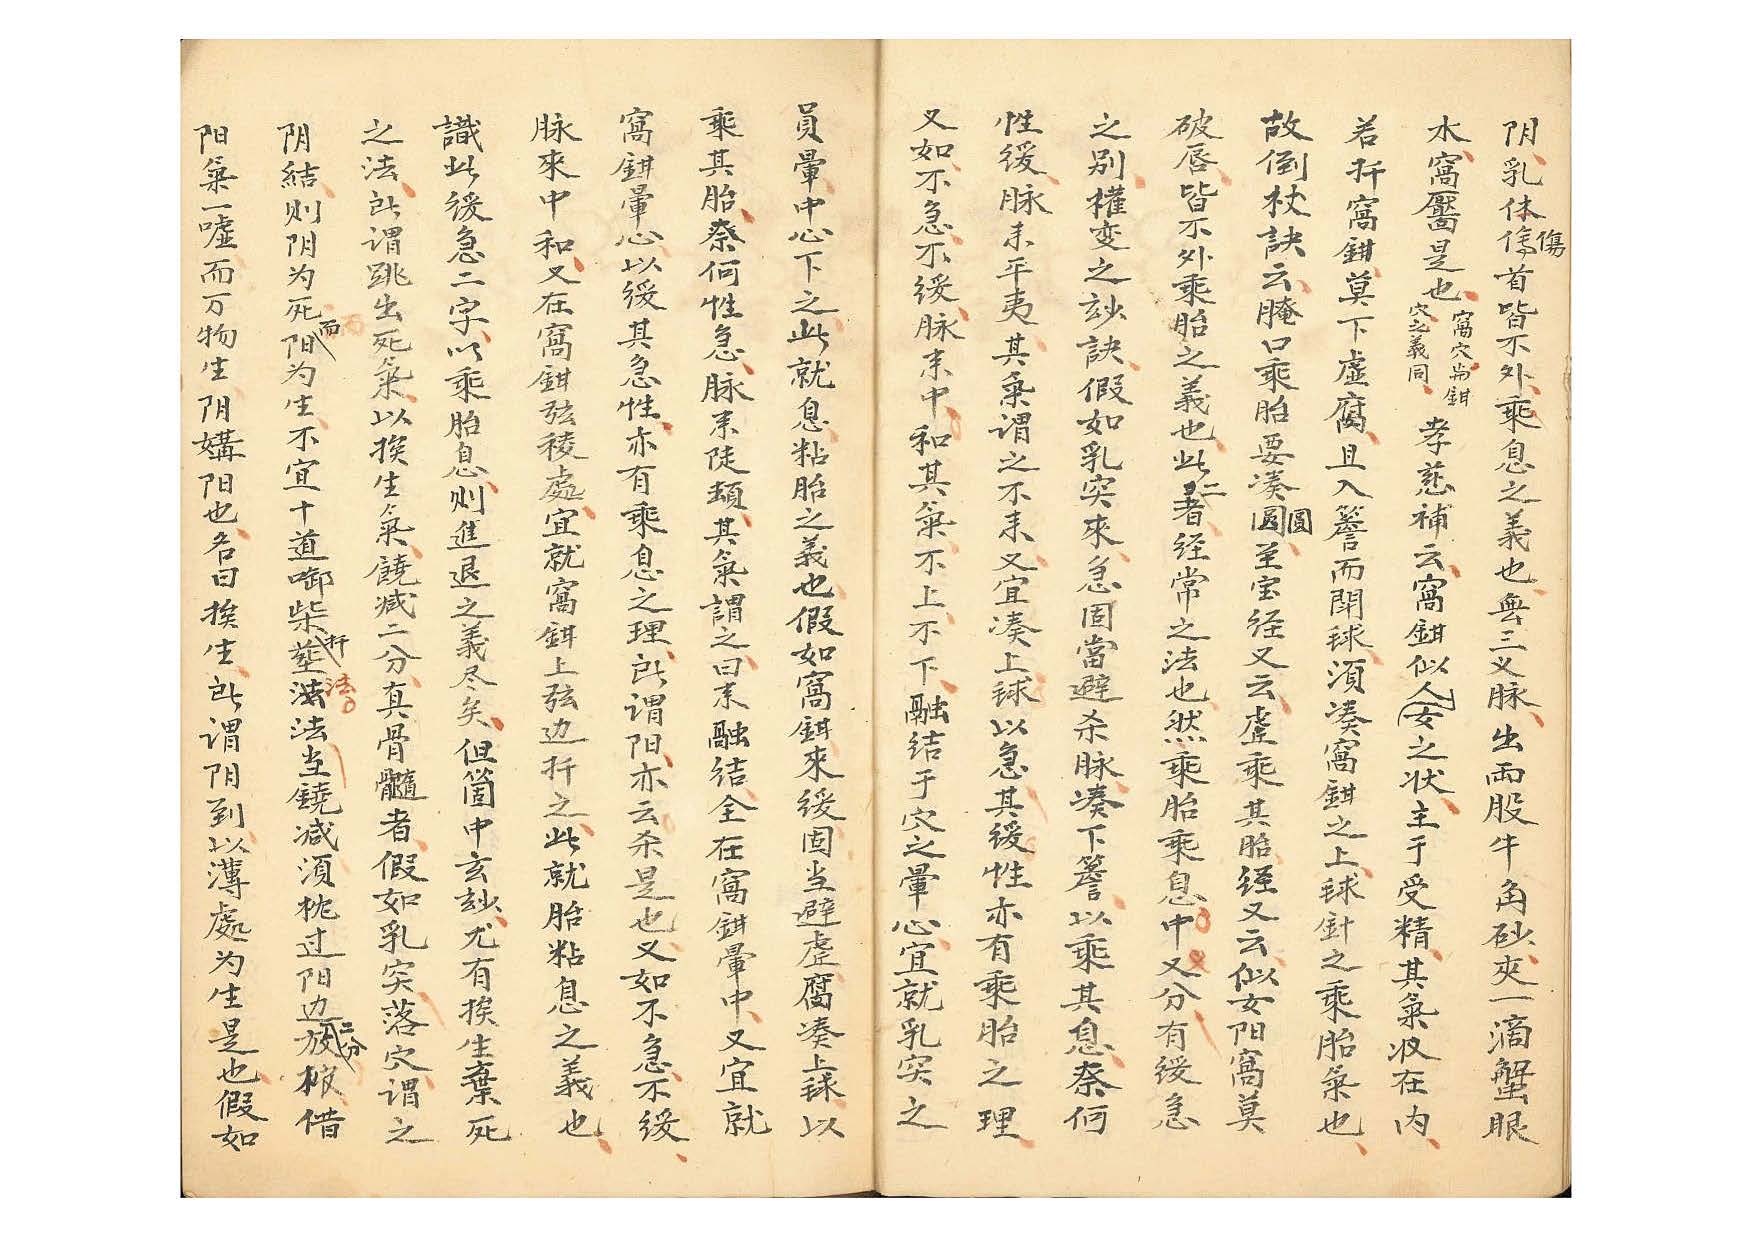 阴乳体傷首皆不外乘息之義也無三义脉出両股牛角砂夾一滴蟹眼
水窩靨是也窩穴耑鉗穴之義同孝慈補云窩鉗似女人之状主于受精其氣收在内
若扦窩鉗莫下虚腐且入簷而閗毬湏凑窩鉗之上毬針之乘胎氣也
故倒杖訣云腌口乘胎要凑圓至宝经又云虚乘其胎经又云似女阳窩莫
破唇皆不外乘胎之義也此二者经常之法也然乘胎乘息中又分有缓急
之别權变之玅訣假如乳突來急固當避杀脉凑下簷以乘其息奈何
性缓脉来平夷其氣谓之不来又宜凑上毬以急其缓性亦有乘胎之理
又如不急不缓脉来中和其氣不上不下融结于穴之暈心宜就乳突之
員暈中心下之此就息粘胎之義也假如窩鉗來缓固当避虚腐凑上毬以
乘其胎奈何性急脉来陡頺其氣謂之曰来融结全在窩鉗暈中又宜就
窩鉗暈心以缓其急性亦有乘息之理所谓阳亦云杀是也又如不急不缓
脉來中和又在窩鉗弦稜處宜就窩鉗上弦边扦之此就胎粘息之義也
識此缓急二字以乘胎息则進退之義尽矣但箇中玄玅尤有挨生棄死
之法所谓跳出死氣以挨生氣饒减二分真骨髓者假如乳突落穴谓之
阴結则阴为死而阳为生不宜十道啣柴扦法当饒减湏枕过阳边二分放棺借
阳氣一嘘而万物生阴媾阳也名曰挨生所谓阴到以薄處为生是也假如